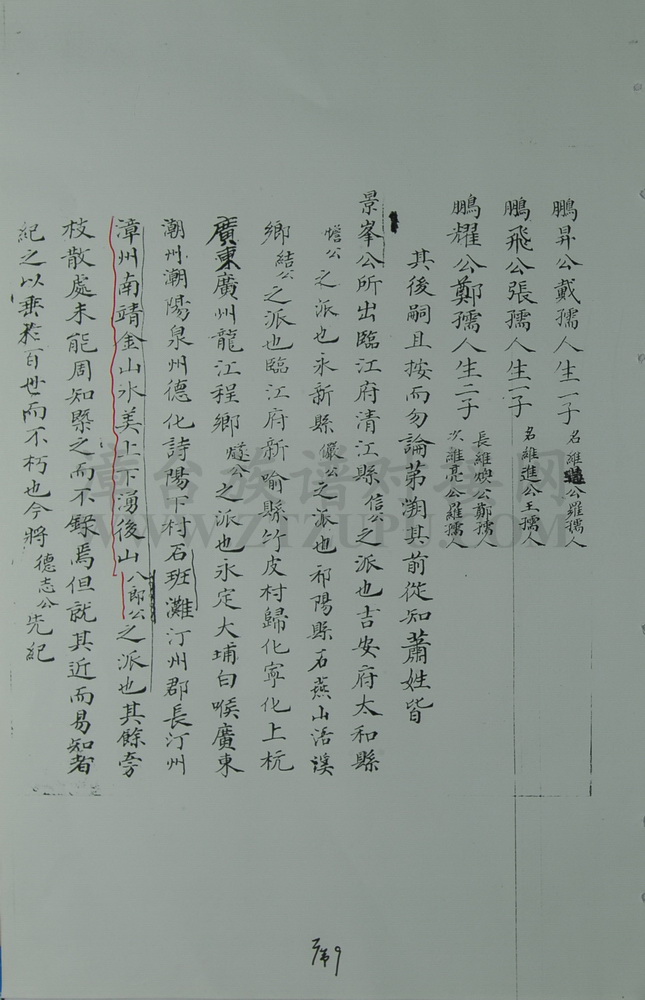 鵬昇公戴孺人生一子 名維公羅孺人
鵬飛公張孺人生一子 名維進公王孺人
鵬耀公鄭孺人生二子 長維煥公鄭孺人 次維亮公羅孺人
其後嗣且按而勿論第溯其前從知蕭姓皆
景峯公所出臨江府清江縣信公之派也吉安府太和縣
公之派也永新縣儼公之派也祁陽縣石燕山活溪
鄉結公之派也臨江府新喻縣竹皮村歸化寧化上杭
廣東廣州龍江程鄉公之派也永定大埔白喉廣東
潮州潮陽泉州德化詩陽下村石班灘汀州郡長汀州
漳州南靖金山水美上下湧後山八郎公之派也其餘旁
枝散處未能周知槩之而不錄焉但就其近而易知者
紀之以垂於百世而不朽也今將德志公先紀
章台族谱对接网
WWW.ZTZUPU.COM